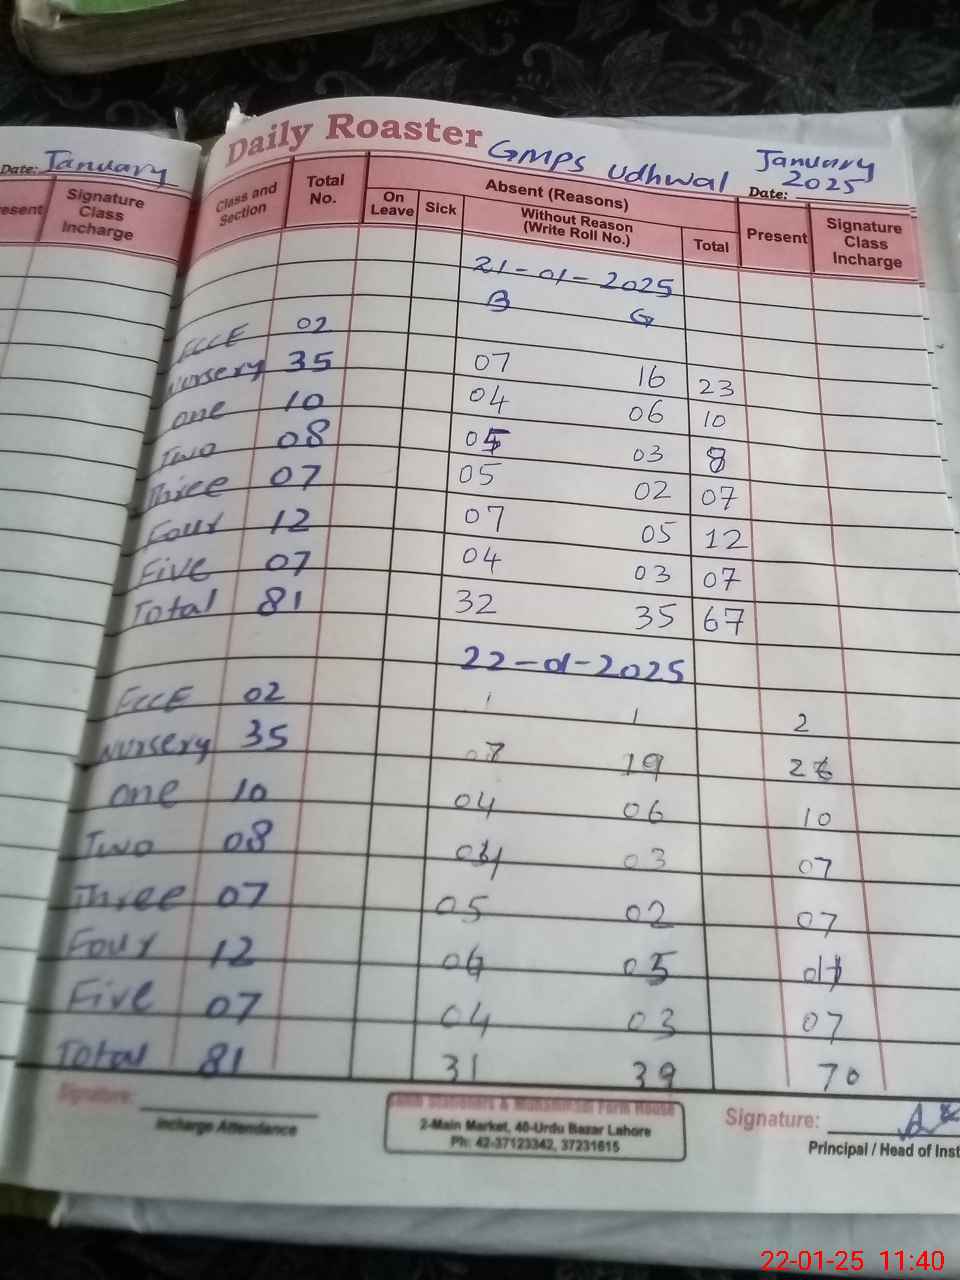 Daily Roaster GMPS Udhwal January 2025
Date: January
Date:
esent Signature Class Incharge
Class and Section Total No. Absent (Reasons) Present Signature Class Incharge
On Leave Sick Without Reason (Write Roll No.) Total
21-01-2025
B G
ECCE 02
Nursery 35 07 16 23
one 10 04 06 10
Two 08 05 03 8
Three 07 05 02 07
Four 12 07 05 12
Five 07 04 03 07
Total 81 32 35 67
22-01-2025
ECCE 02 1 1 2
Nursery 35 07 19 26
one 10 04 06 10
Two 08 04 03 07
Three 07 05 02 07
Four 12 06 05
Five 07 04 03 07
Total 81 31 39 70
Signature:
Incharge Attendance
Stationers & Muhammadi Form House
2-Main Market, 40-Urdu Bazar Lahore
Ph: 42-37123342, 37231615
Signature:
Principal / Head of Inst
22-01-25 11:40